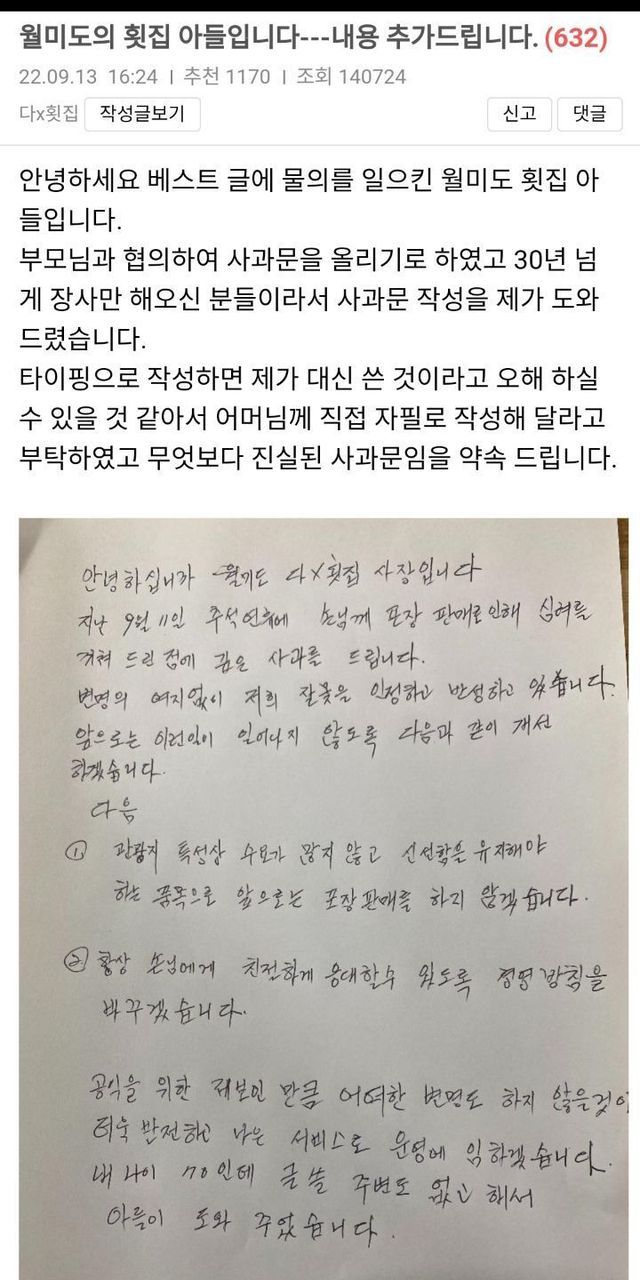 월미도의 횟집 아들입니다---내용 추가드립니다. (632)
22.09.13 16:24 | 추천 1170 | 조회 140724
다x횟집 작성글보기 신고 댓글
안녕하세요 베스트 글에 물의를 일으킨 월미도 횟집 아
들입니다.
부모님과 협의하여 사과문을 올리기로 하였고 30년 넘
게 장사만 해오신 분들이라서 사과문 작성을 제가 도와
드렸습니다.
타이핑으로 작성하면 제가 대신 쓴 것이라고 오해 하실
수 있을 것 같아서 어머님께 직접 자필로 작성해 달라고
부탁하였고 무엇보다 진실된 사과문임을 약속 드립니다.
안녕하십니까 월미도 다X횟집 사장입니다
지난 9월 11일 추석연휴에 손님께 포장 판매로 인해 심려를
끼쳐 드린 점에 깊은 사과를 드립니다.
변명의 여지없이 저희 잘못을 인정하고 반성하고 있습니다.
앞으로는 이런일이 일어나지 않도록 다음과 같이 개선
하겠습니다.
다음
① 관광지 특성상 수요가 많지 않고 신선함을 유지해야
하는 품목으로 앞으로는 포장판매를 하지 않겠습니다.
② 항상 손님에게 친전하게 응대할수 있도록 경영방침을
바꾸겠습니다.
공익을 위한 제보인 만큼 어떠한 변명도 하지 않을것이
더욱 반전하고 나은 서비스로 운영에 임하겠습니다.
내 나이 70인데 글 쓸 주변도 없고 해서
아들이 도와 주었습니다.